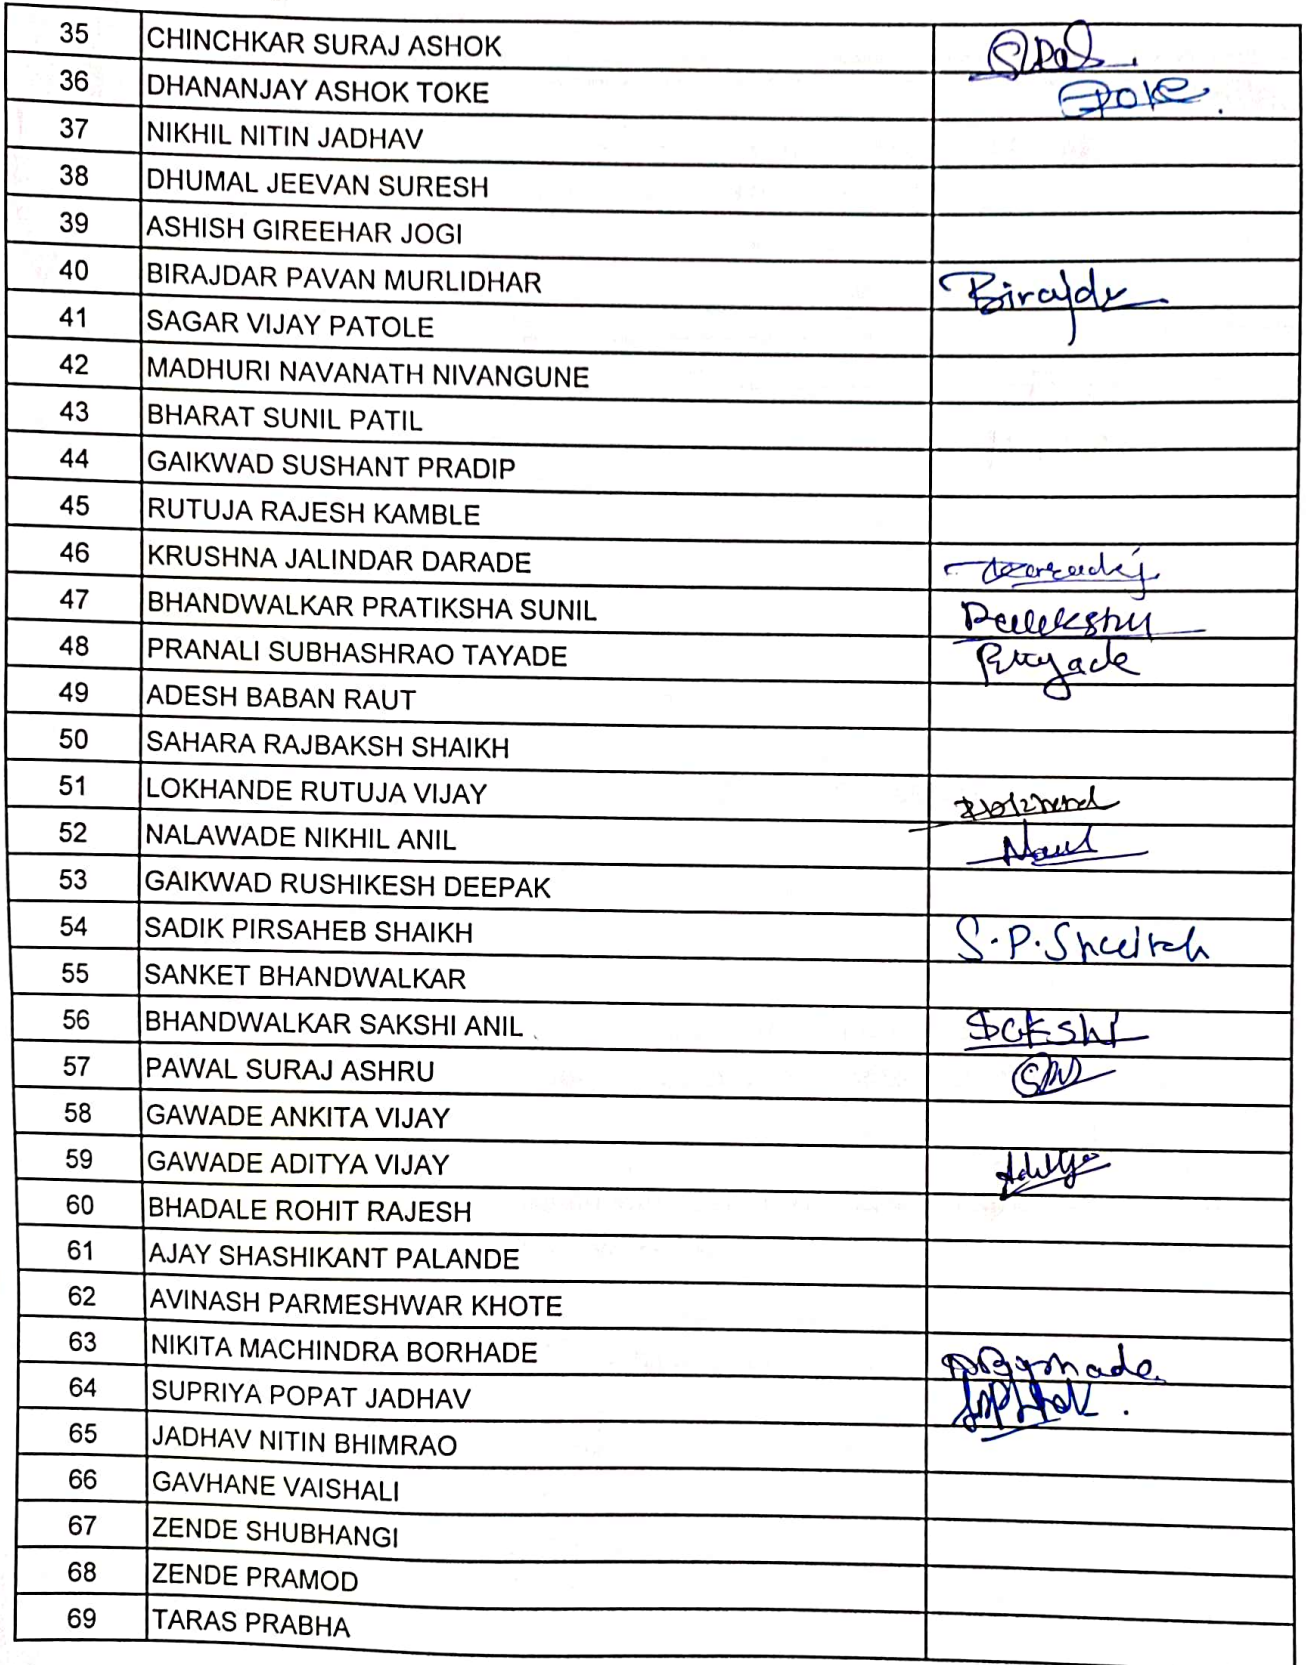 35 CHINCHKAR SURAJ ASHOK
36 DHANANJAY ASHOK TOKE Toke.
37 NIKHIL NITIN JADHAV
38 DHUMAL JEEVAN SURESH
39 ASHISH GIREEHAR JOGI
40 BIRAJDAR PAVAN MURLIDHAR Birajdr
41 SAGAR VIJAY PATOLE
42 MADHURI NAVANATH NIVANGUNE
43 BHARAT SUNIL PATIL
44 GAIKWAD SUSHANT PRADIP
45 RUTUJA RAJESH KAMBLE
46 KRUSHNA JALINDAR DARADE
47 BHANDWALKAR PRATIKSHA SUNIL
48 PRANALI SUBHASHRAO TAYADE
49 ADESH BABAN RAUT
50 SAHARA RAJBAKSH SHAIKH
51 LOKHANDE RUTUJA VIJAY
52 NALAWADE NIKHIL ANIL
53 GAIKWAD RUSHIKESH DEEPAK
54 SADIK PIRSAHEB SHAIKH S.P.Shaikh
55 SANKET BHANDWALKAR
56 BHANDWALKAR SAKSHI ANIL Sakshi
57 PAWAL SURAJ ASHRU
58 GAWADE ANKITA VIJAY
59 GAWADE ADITYA VIJAY Aditya
60 BHADALE ROHIT RAJESH
61 AJAY SHASHIKANT PALANDE
62 AVINASH PARMESHWAR KHOTE
63 NIKITA MACHINDRA BORHADE
64 SUPRIYA POPAT JADHAV
65 JADHAV NITIN BHIMRAO
66 GAVHANE VAISHALI
67 ZENDE SHUBHANGI
68 ZENDE PRAMOD
69 TARAS PRABHA